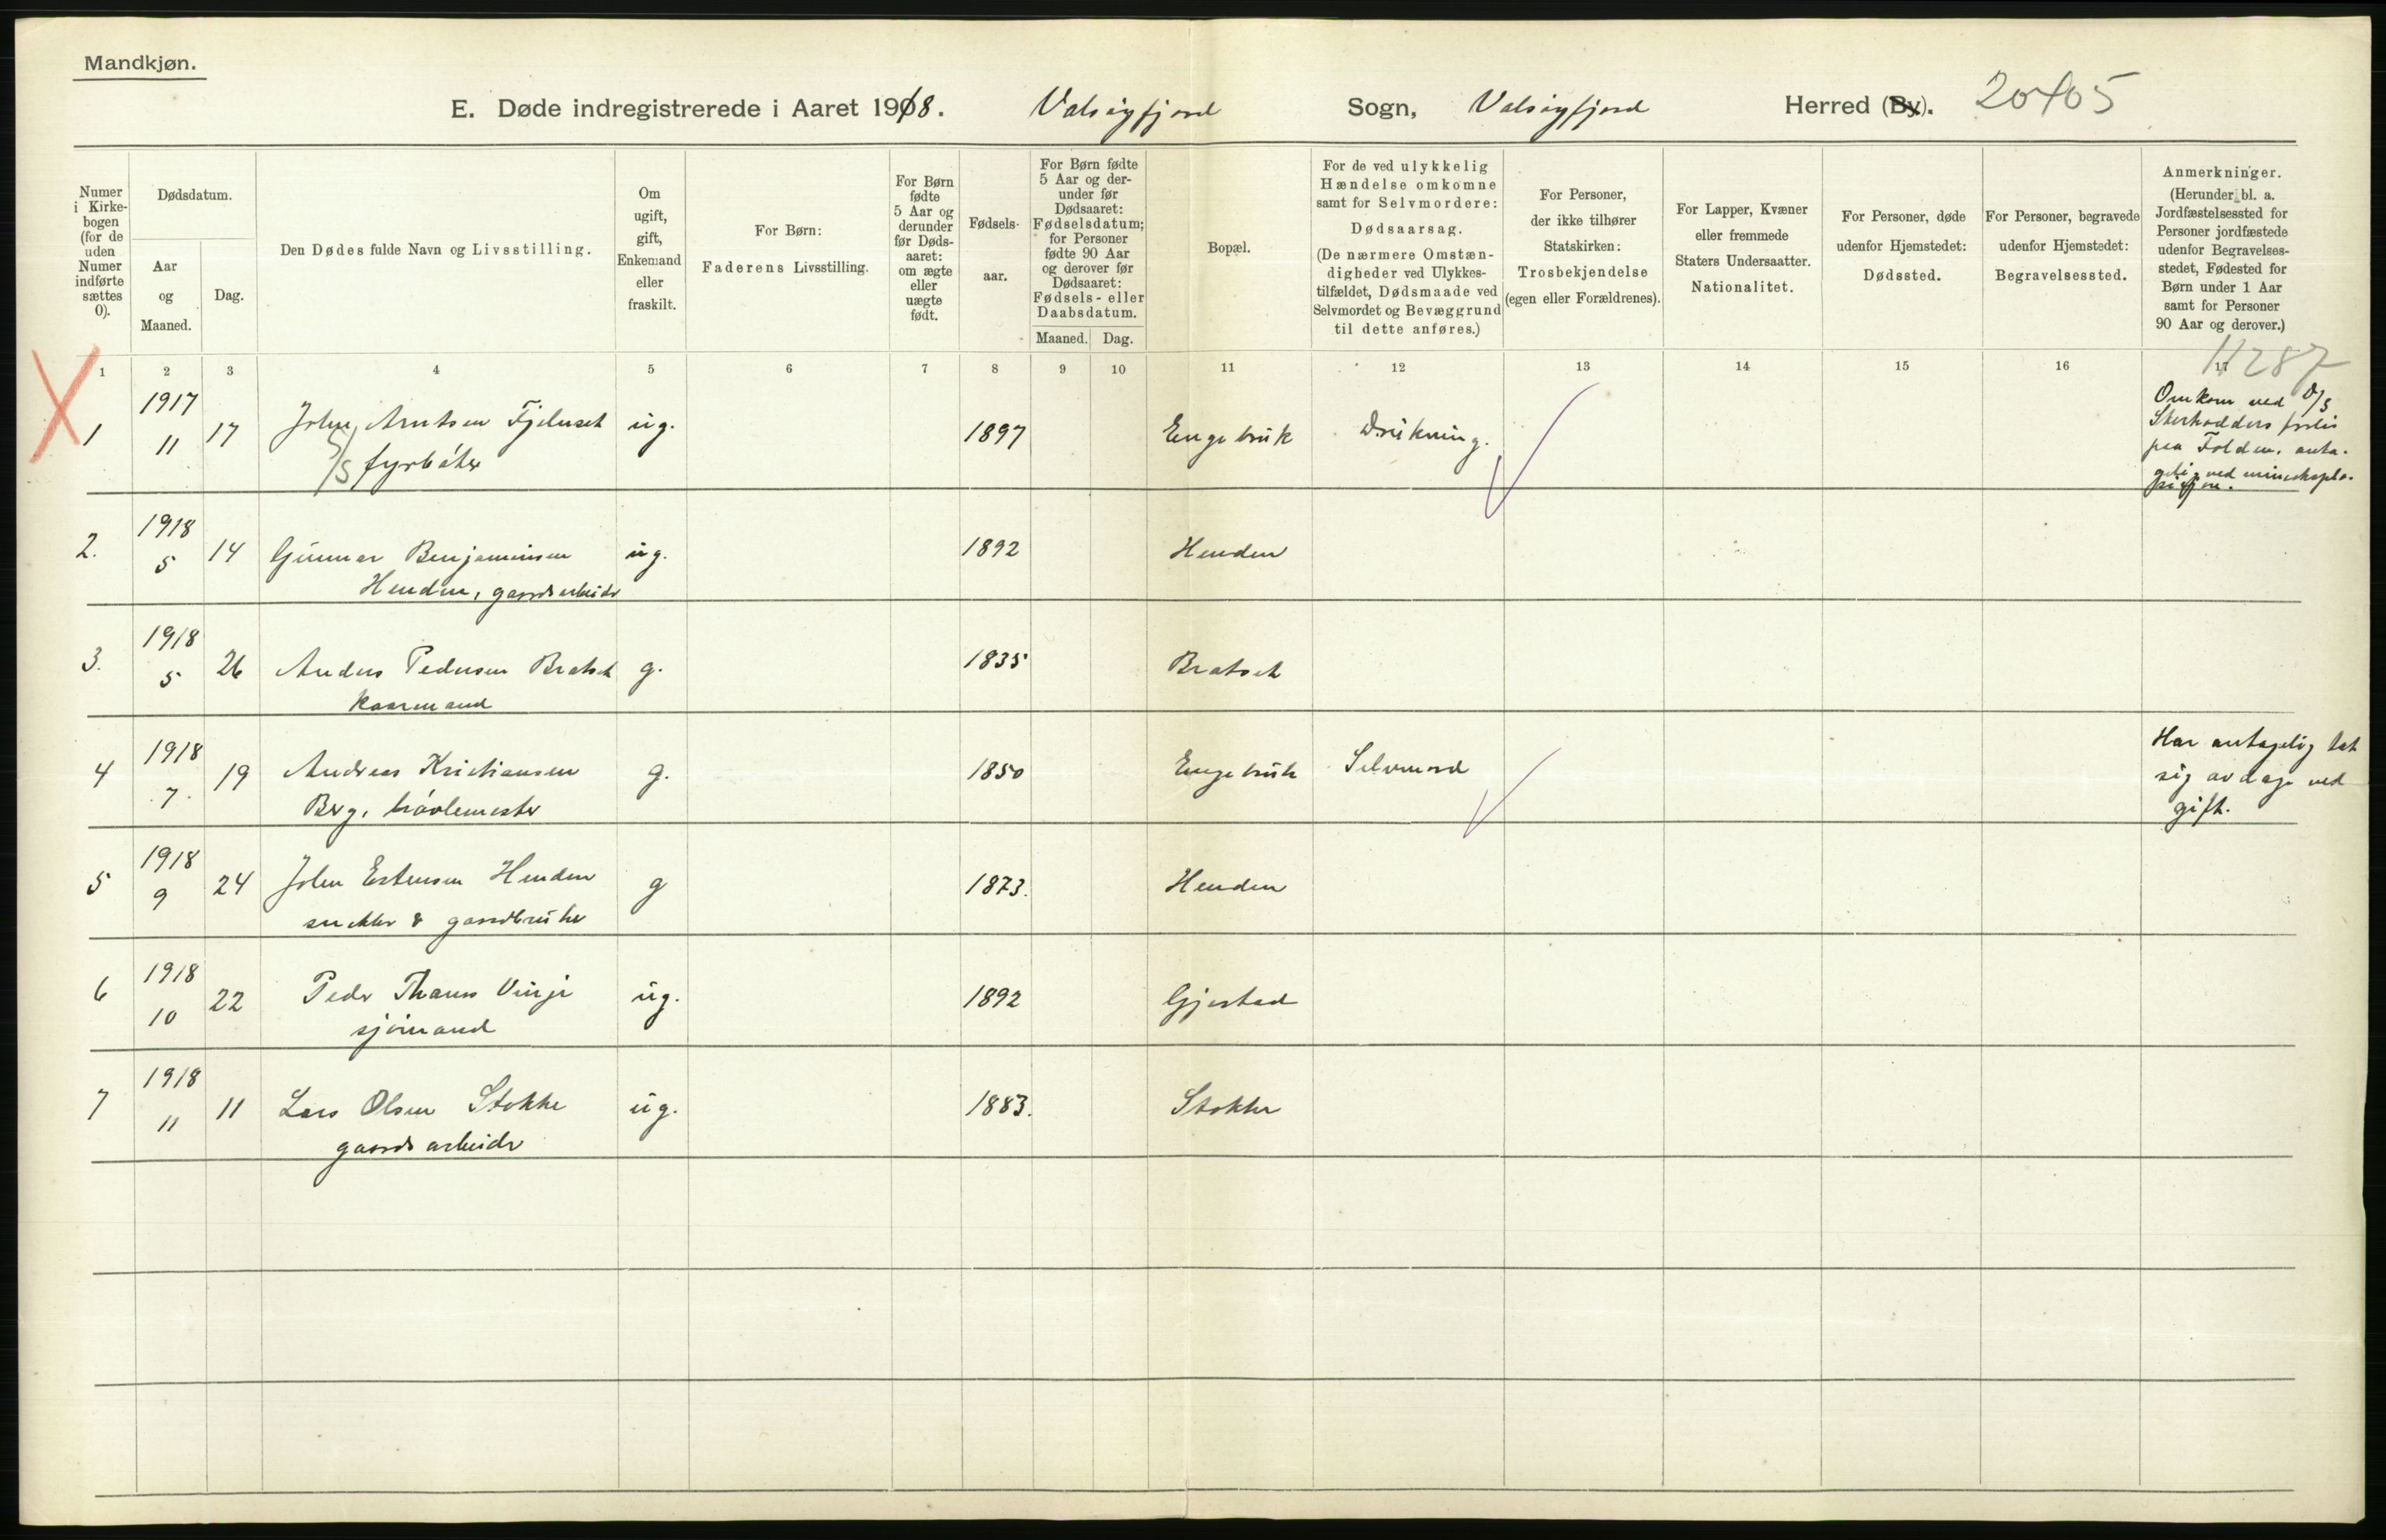 Mandkjøn.
E. Døde indregistrerede i Aaret 1918. Valsøyfjord Sogn, Valsøyfjord Herred (By). 20/05
Numer i Kirke-bogen (for de uden Numer indførte sættes 0).
Dødsdatum.
Aar og Maaned.
Dag.
Den Dødes fulde Navn og Livsstilling.
Om ugift, gift, Enkemand eller fraskilt.
For Børn:
Faderens Livsstilling.
For Børn fødte 5 Aar og derunder før Døds-aaret: om ægte eller uægte født.
Fødsels-aar.
For Børn fødte 5 Aar og der-under før Dødsaaret: Fødselsdatum; for Personer fødte 90 Aar og derover før Dødsaaret: Fødsels- eller Daabsdatum.
Maaned. Dag.
Bopæl.
For de ved ulykkelig Hændelse omkomne samt for Selvmordere:
Dødsaarsag.
(De nærmere Omstæn-digheder ved Ulykkes-tilfældet, Dødsmaade ved Selvmordet og Bevæggrund til dette anføres.)
For Personer, der ikke tilhører Statskirken:
Trosbekjendelse
(egen eller Forældrenes).
For Lapper, Kvæner eller fremmede Staters Undersaatter.
Nationalitet.
For Personer, døde udenfor Hjemstedet:
Dødssted.
For Personer, begravede udenfor Hjemstedet:
Begravelsessted.
Anmerkninger.
(Herunder bl. a. Jordfæstelsessted for Personer jordfæstede udenfor Begravelses-stedet, Fødested for Børn under 1 Aar samt for Personer 90 Aar og derover.)
1 2 3 4 5 6 7 8 9 10 11 12 13 14 15 16 17
11287
1 1917 11 17 John Arntsen Fjelnset ug. 1897 Engebruk Drukning. Omkom ved D/S
S/S fyrbøter
Sterkodders forlis
paa Folden. anta-
gelig ved mineksplo-
sion.
2. 1918 5 14 Gunnar Benjaminsen ug. 1892 Henden
Henden, gaardsarbeider
3. 1918 5 26 Anders Pedersen Bratset g. 1835 Bratset
kaarmand
4 1918 7 19 Andreas Kristiansen g. 1850 Engebruk Selvmord Har antagelig tat
Berg, høvlemester
sig av dage ved
gift.
5 1918 9 24 John Estensen Henden g 1873. Henden
snekker & gaardbruker
6 1918 10 22 Peder Thanss Vinje ug. 1892 Gjestad
sjømand
7 1918 11 11 Lars Olsen Stokke ug. 1883. Stokke
gaardsarbeider